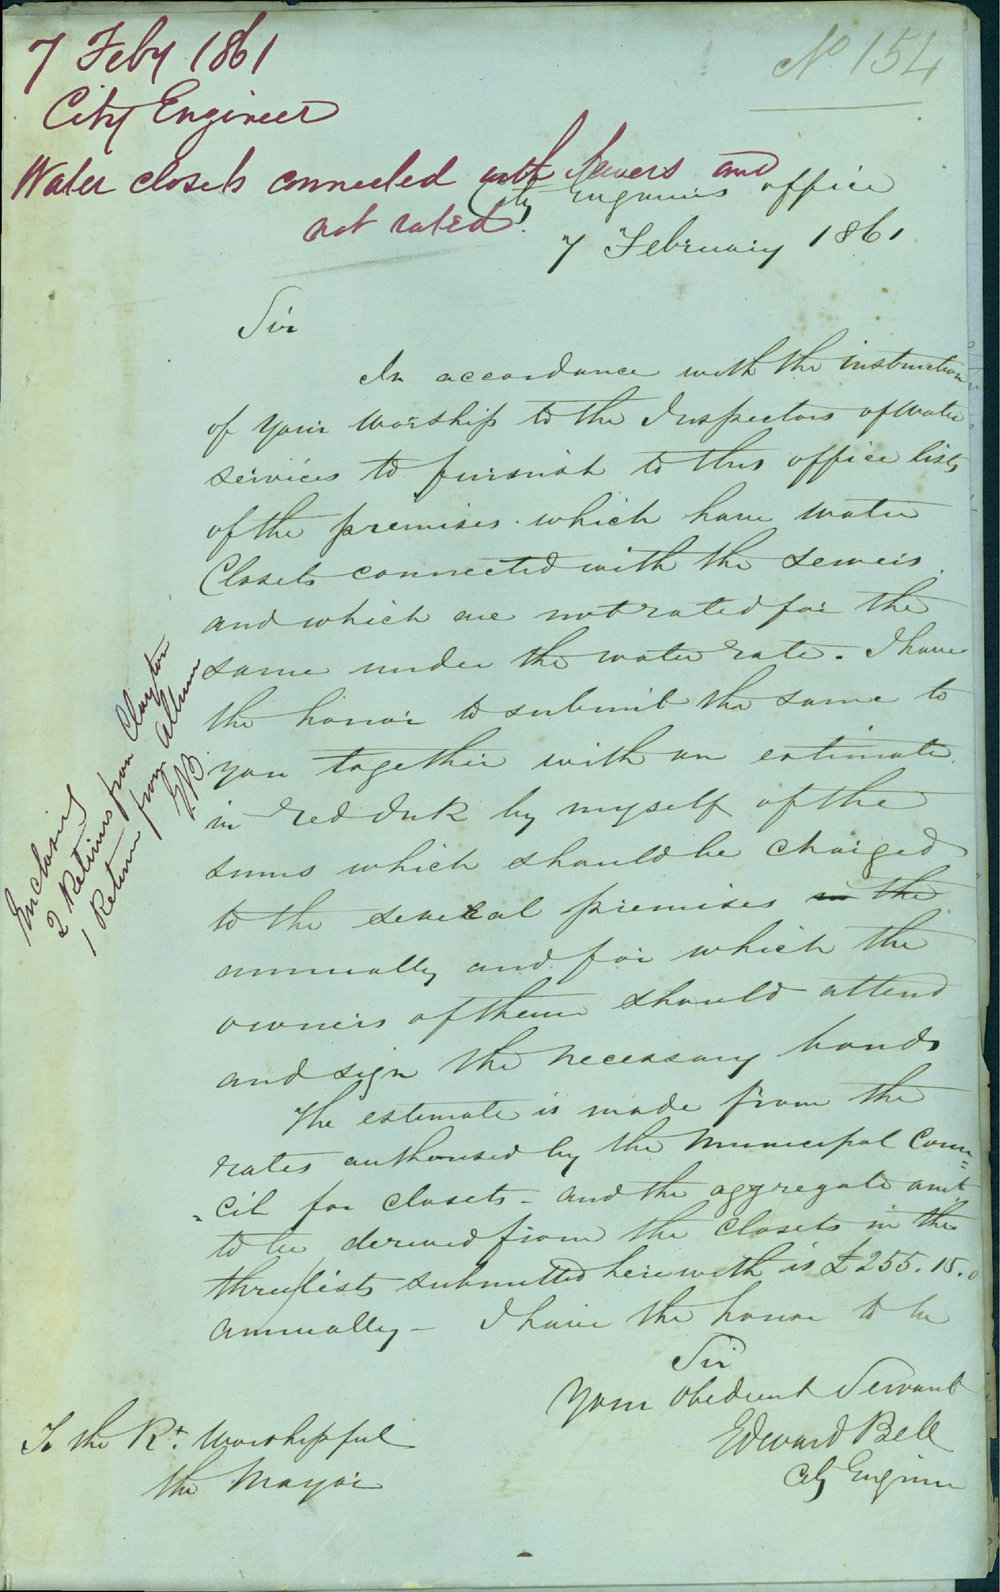 7 Feby 1861
No 154
City Engineer
Water closets connected with sewers and
not rated.
City Engineers office
7 February 1861
Sir
In accordance with the instruction
of your Worship to the Inspectors of Water
services to furnish to this office lists
of the premises which have Water
Closets connected with the sewers
and which are not rated for the
same under the water rate. I have
the honor to submit the same to
you together with an estimate
in red Ink by myself of the
sums which should be charged
to the several premises in the
annually and for which the
owners of them should attend
and sign the necessary bonds
The estimate is made from the
rates authorised by the Municipal Coun=
"cil for closets - and the aggregate amt
to be derived from the closets in the
three lists submitted herewith is £255.15.0
annually - I have the honor to be
Sir
Your obedient Servant
Edward Bell
City Engineer
To the Rt. Worshipful
the Mayor
Enclosing
2 Returns from Clayton
1 Return from Allum
EB